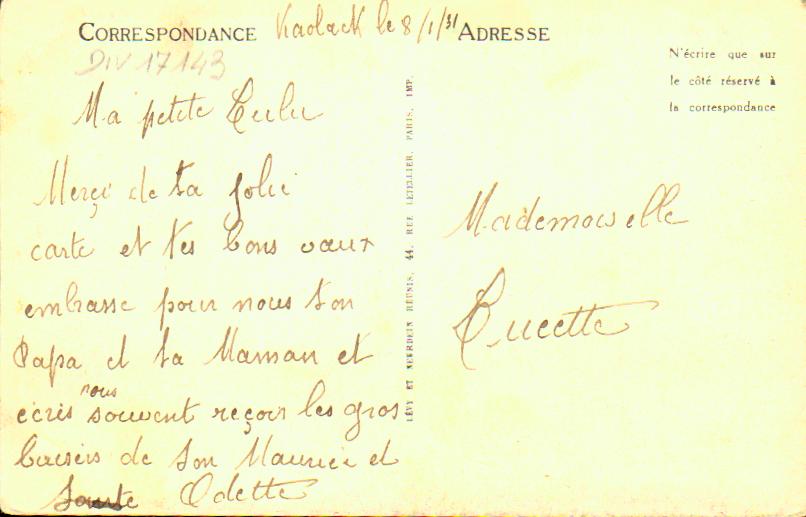 CORRESPONDANCE Kaolack le 8/1/31 ADRESSE
DIV 17143
N'écrire que sur
le côté réservé à
la correspondance
Ma petite Lulu
Merçi de ta jolie
carte et tes bons vœux
embrasse pour nous ton
Papa et ta Maman et
nous
écris souvent reçois les gros
baisers de ton Maurice et
Odette
LÉVY ET NEURDEIN RÉUNIS, 44, RUE LETELLIER, PARIS, IMP.
Mademoiselle
Lucette